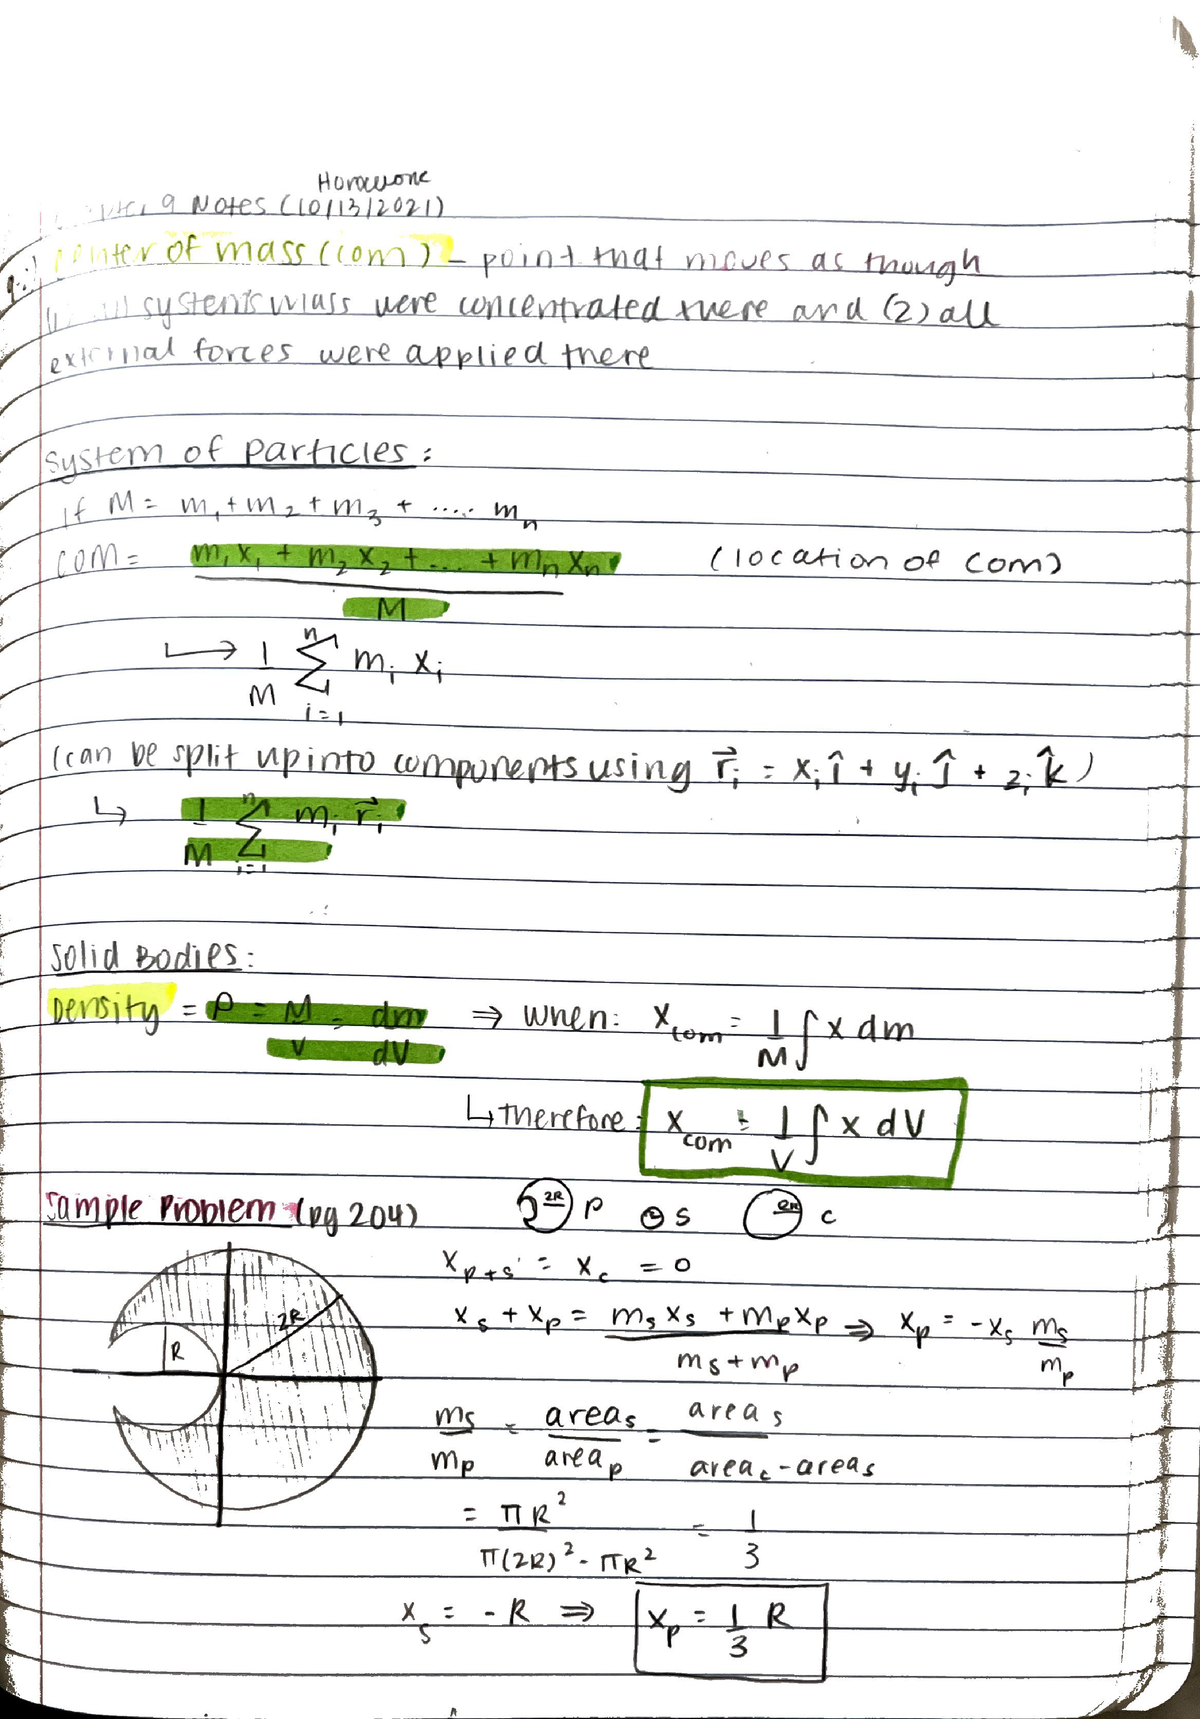 Homework
9 Notes (10/13/2021)
center of mass (com) - point that moves as though
system's mass were concentrated there and (2) all
external forces were applied there
System of particles:
if M = m₁ + m₂ + m₃ + ..... mₙ
COM = m₁x₁ + m₂x₂ + ... + mₙxₙ / M (location of com)
↳ 1/M Σ i=1 n mᵢ xᵢ
(can be split up into components using r⃗ᵢ = xᵢ î + yᵢ ĵ + zᵢ k̂)
↳ 1/M Σ i=1 n mᵢ r⃗ᵢ
Solid Bodies:
Density = ρ = M/V = dm/dV ⇒ when: x_com = 1/M ∫ x dm
↳ therefore: x_com = 1/V ∫ x dV
Sample Problem (pg 204) 2R P S 2R C
x_p+s = x_c = 0
x_s + x_p = m_s x_s + m_p x_p / m_s + m_p ⇒ x_p = -x_s m_s/m_p
2R
R
m_s/m_p = area_s/area_p = area_s/area_c - area_s
= πR²/π(2R)² - πR² = 1/3
x_s = -R ⇒ x_p = 1/3 R